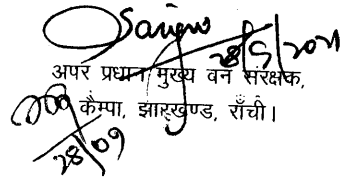 28/9/2021
अपर प्रधान मुख्य वन संरक्षक,
कैम्पा, झारखण्ड, राँची।
28/09